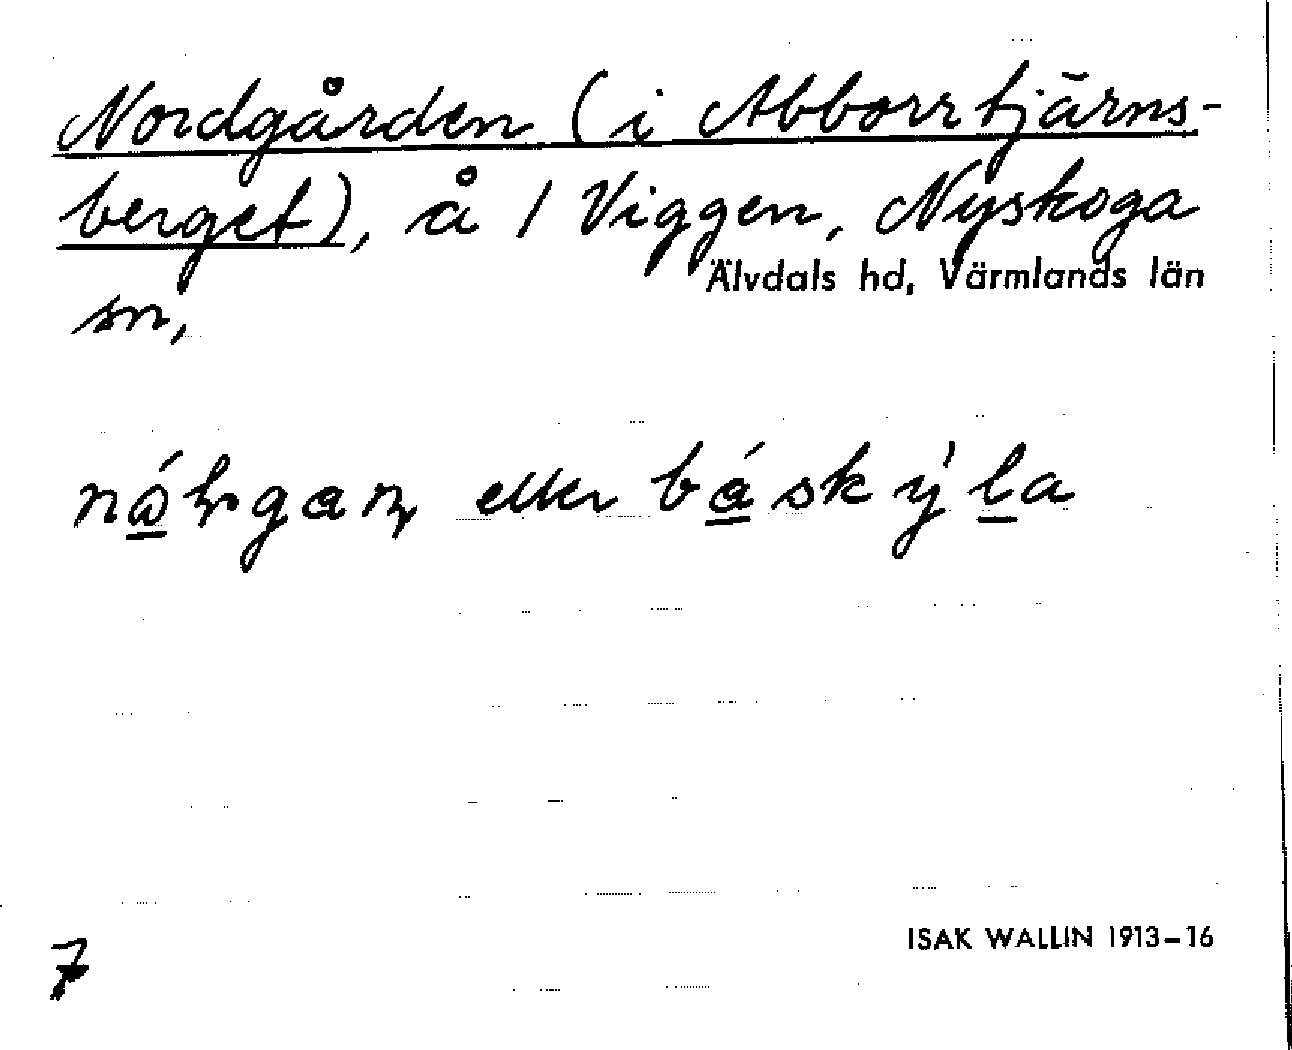 Nordgården (i Abborrtjärns-
berget), å 1 Viggen, Nyskoga
Älvdals hd, Värmlands län
sn,
eller
7
ISAK WALLIN 1913-16